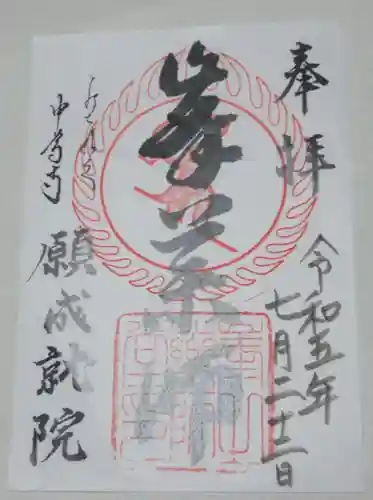 奉拝
令和五年
七月二十二日
峯薬師
中尊寺
願成就院